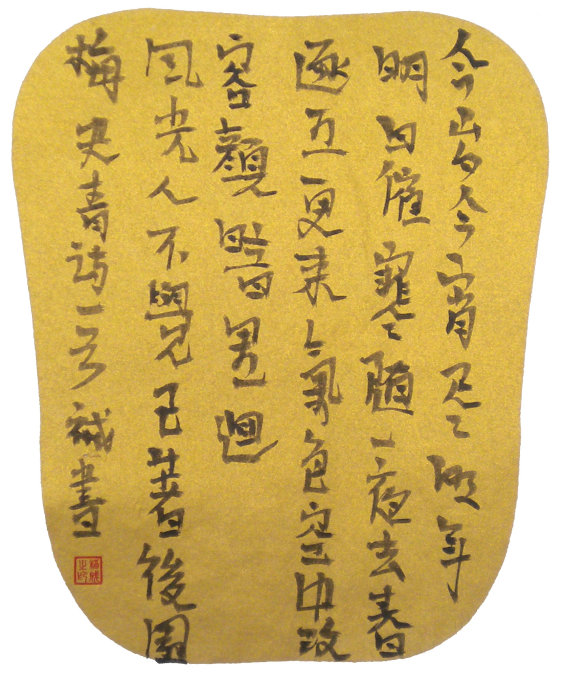 今岁今宵尽明年
明日催寒随一夜去春
逐五更来氣色空中改
容顏暗里迴
风光人不覺已著後園
梅史青诗一首書